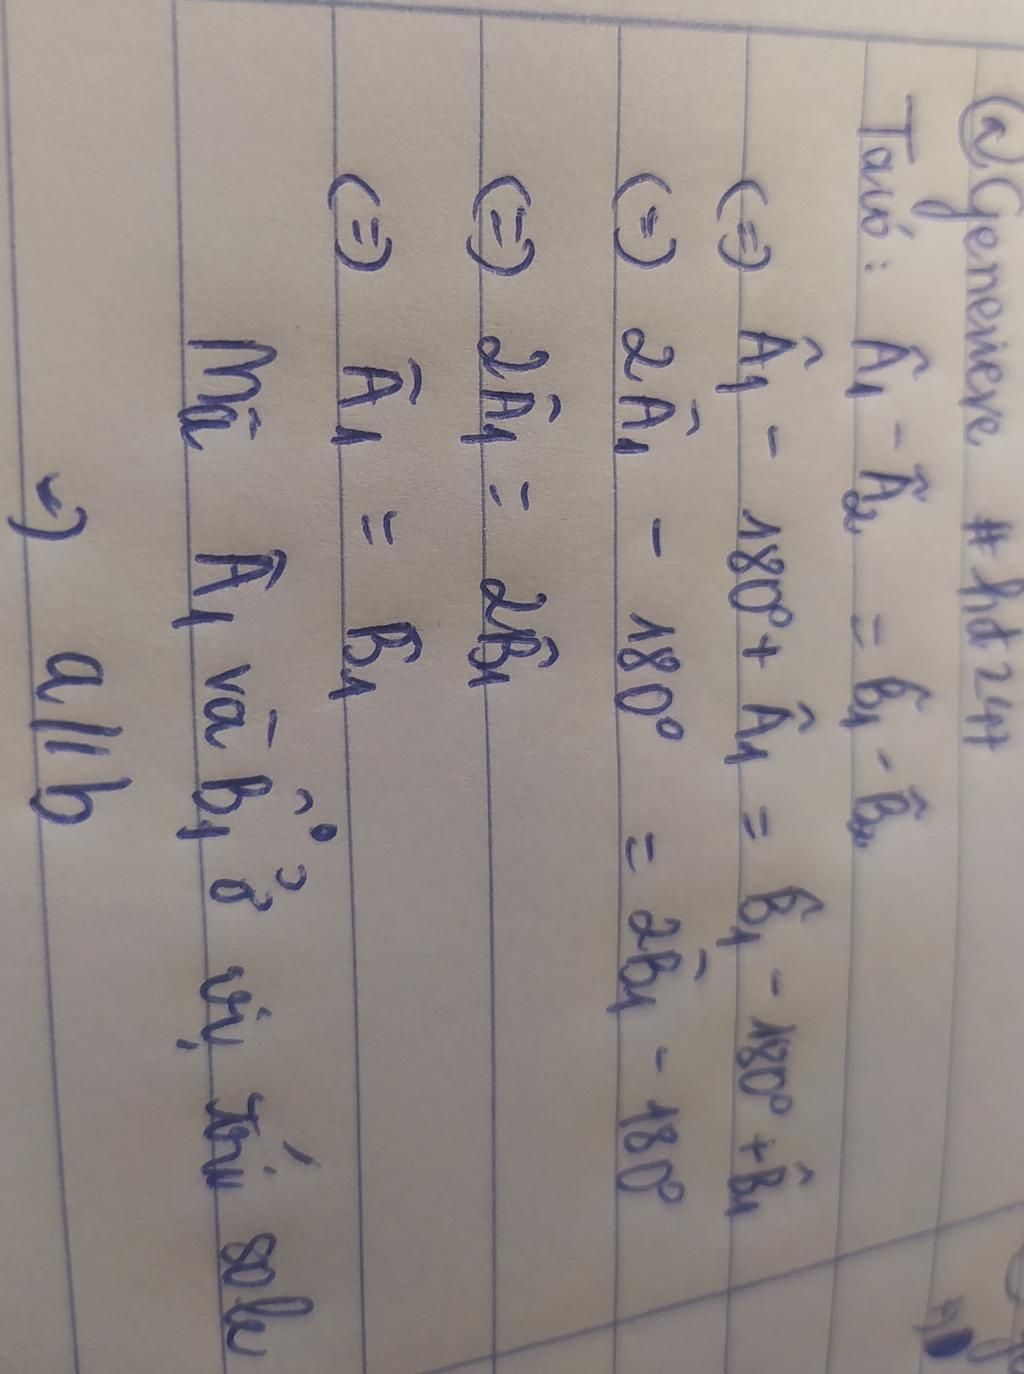 @Genevieve #hđ247
Ta có: Â1 - Â2 = B̂1 - B̂2
(=) Â1 - 180° + Â1 = B̂1 - 180° + B̂1
(=) 2Â1 - 180° = 2B̂1 - 180°
(=) 2Â1 = 2B̂1
(=) Â1 = B̂1
Mà Â1 và B̂1 ở vị trí so le
=) a//b